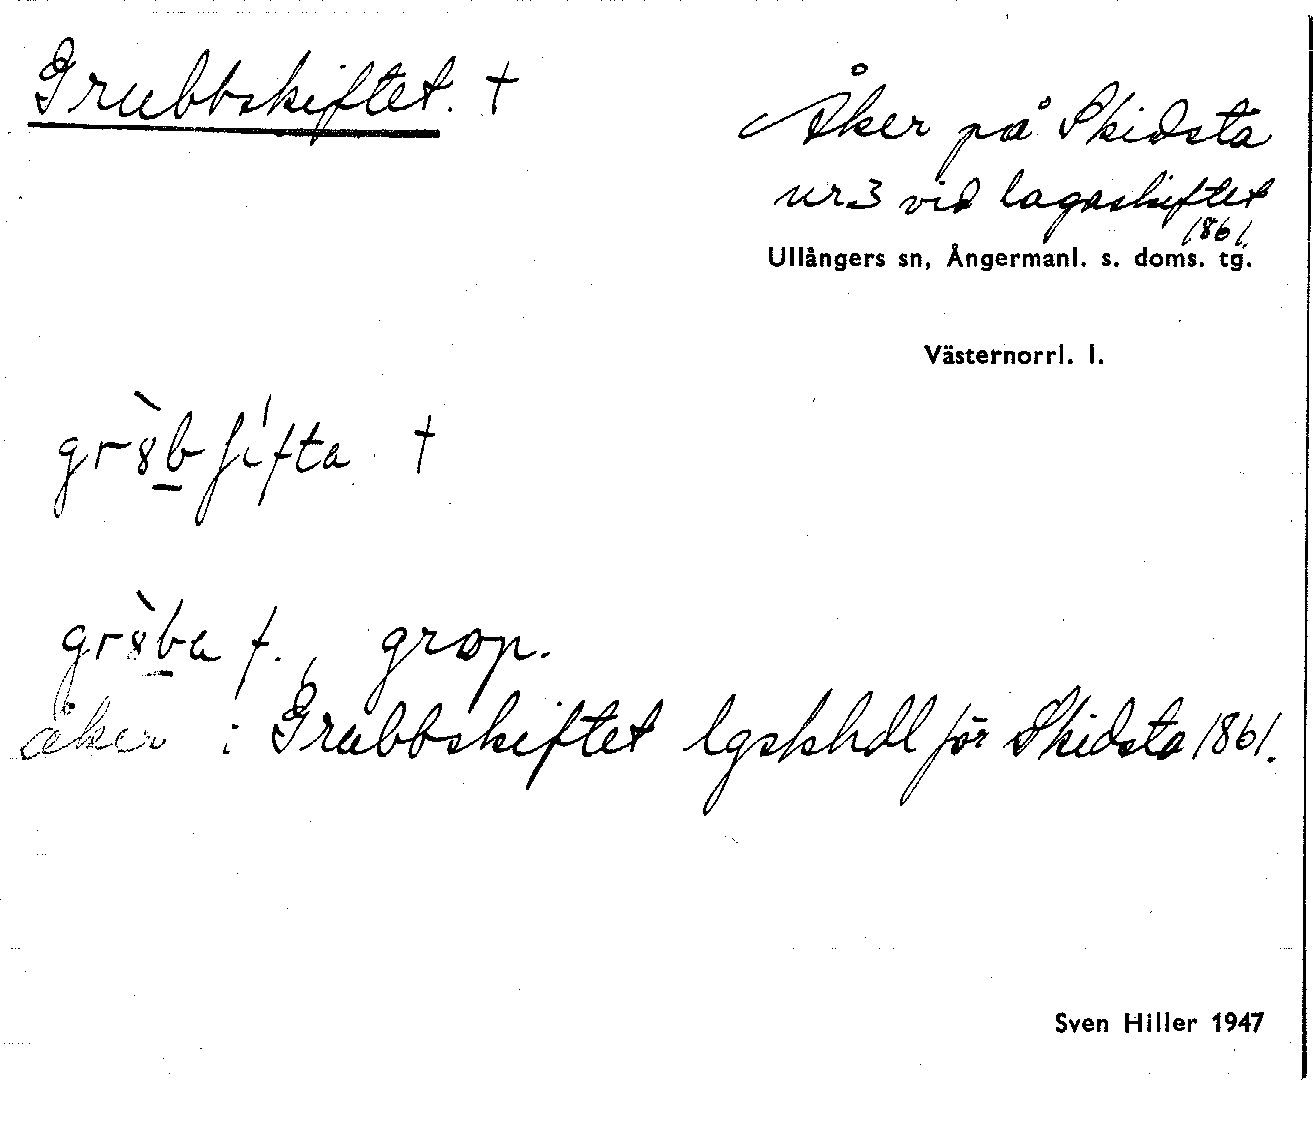 Grubbskiftet. †
Åker på Skidsta
nr 3 vid lagaskiftet
1861.
Ullångers sn, Ångermanl. s. doms. tg.
Västernorrl. l.
gr8̀b ʃifta †
gr8̀ba f., grop.
åker : Grubbskiftet lgskhdl för Skidsta 1861.
Sven Hiller 1947